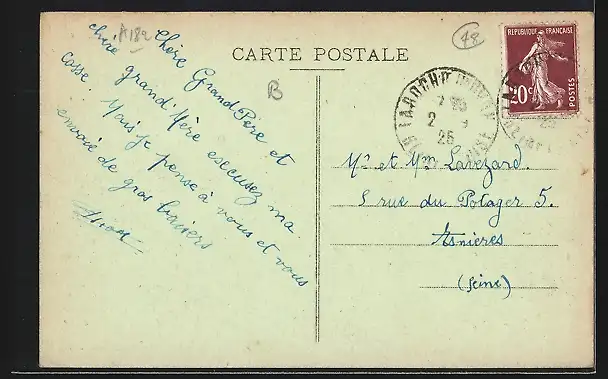 A182
48
CARTE POSTALE
B
Chère Grand Père et
chère grand' Mère execusez ma
cosse Mais je pense à vous et vous
envoie de gros baisers
RÉPUBLIQUE FRANÇAISE
20c
POSTES
LA ROCHE
2
25
Mr et Mm Lavezard.
5 rue du Potager 5.
Asnières
(Seine)